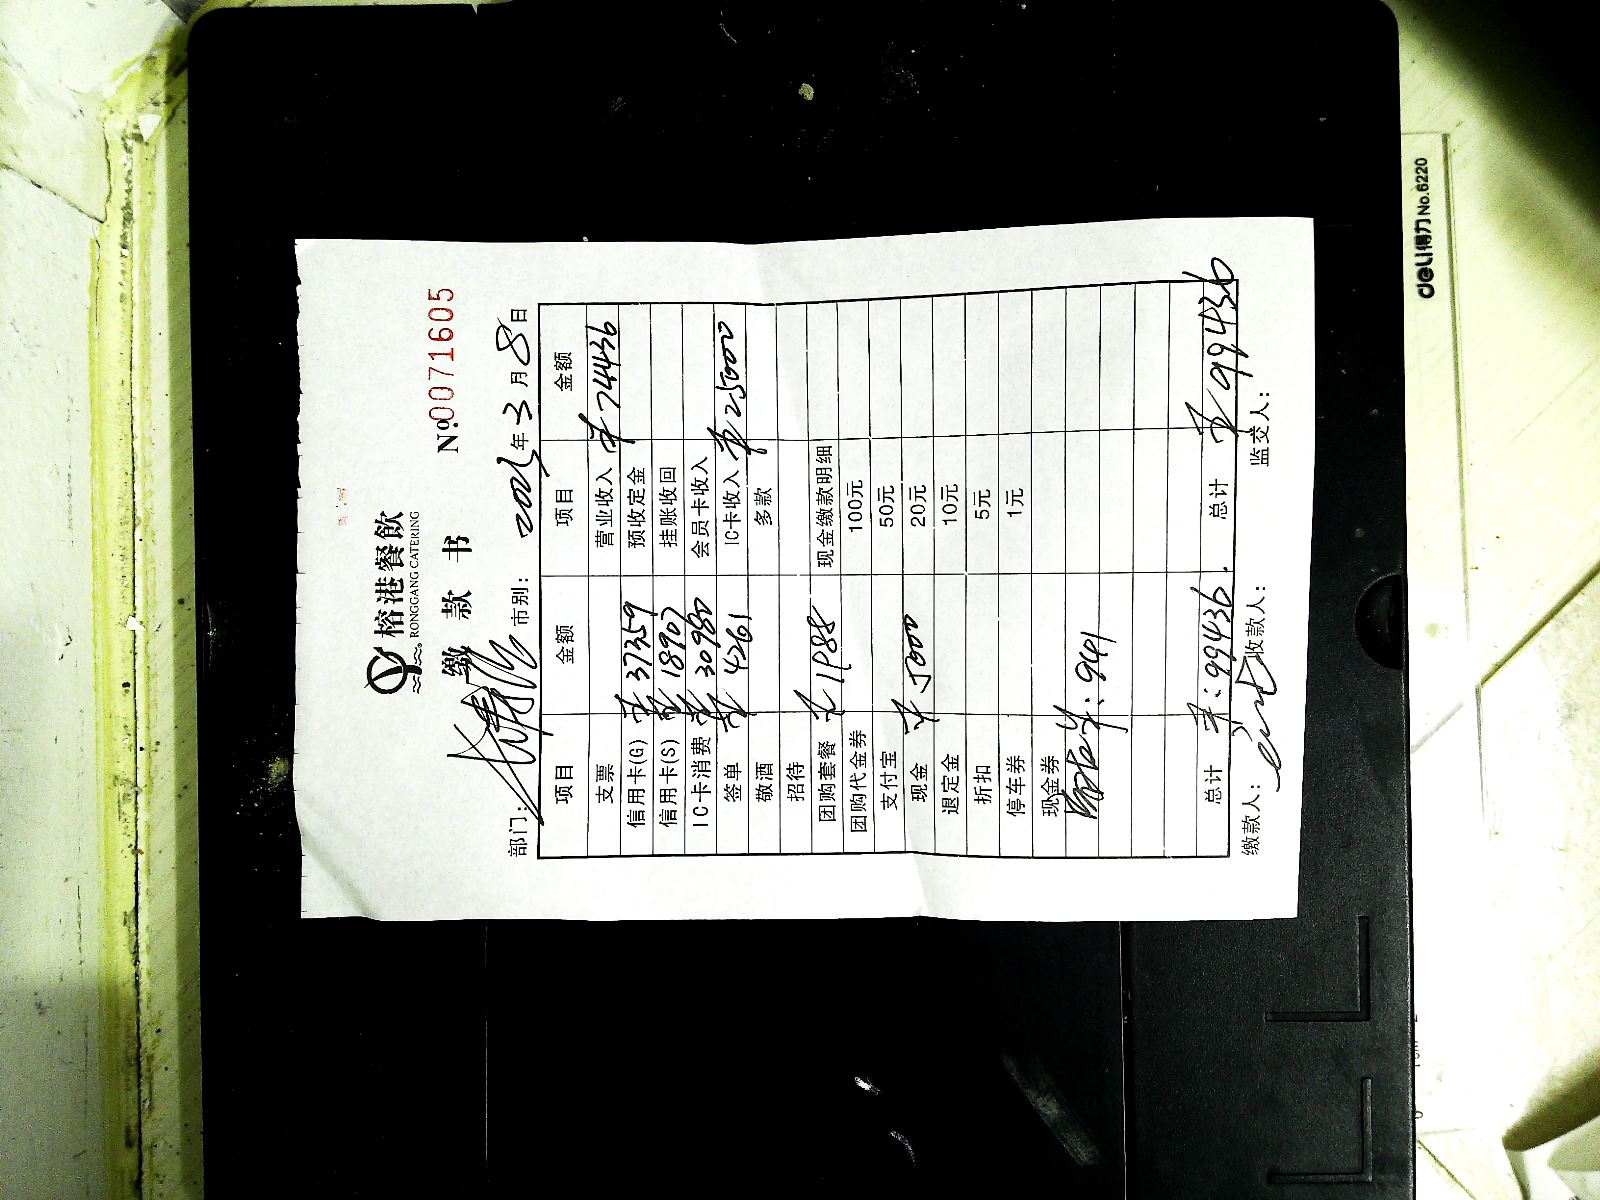 榕港餐飲
RONGGANG CATERING
缴款书
№0071605
部门: 市别: 年3月8日
项目 金额 项目 金额
支票 营业收入 ¥74436
信用卡(G) ¥37359 预收定金
信用卡(S) ¥18907 挂账收回
IC卡消费 ¥30980 会员卡收入
签单 ¥4261 IC卡收入 ¥25000
敬酒 多款
招待
团购套餐 ¥1988 现金缴款明细
团购代金券 100元
支付宝 50元
现金 ¥5000 20元
退定金 10元
折扣 5元
停车券 1元
现金券
¥:941
总计 ¥:99436. 总计 ¥99436
缴款人: 收款人: 监交人:
deli得力 No.6220